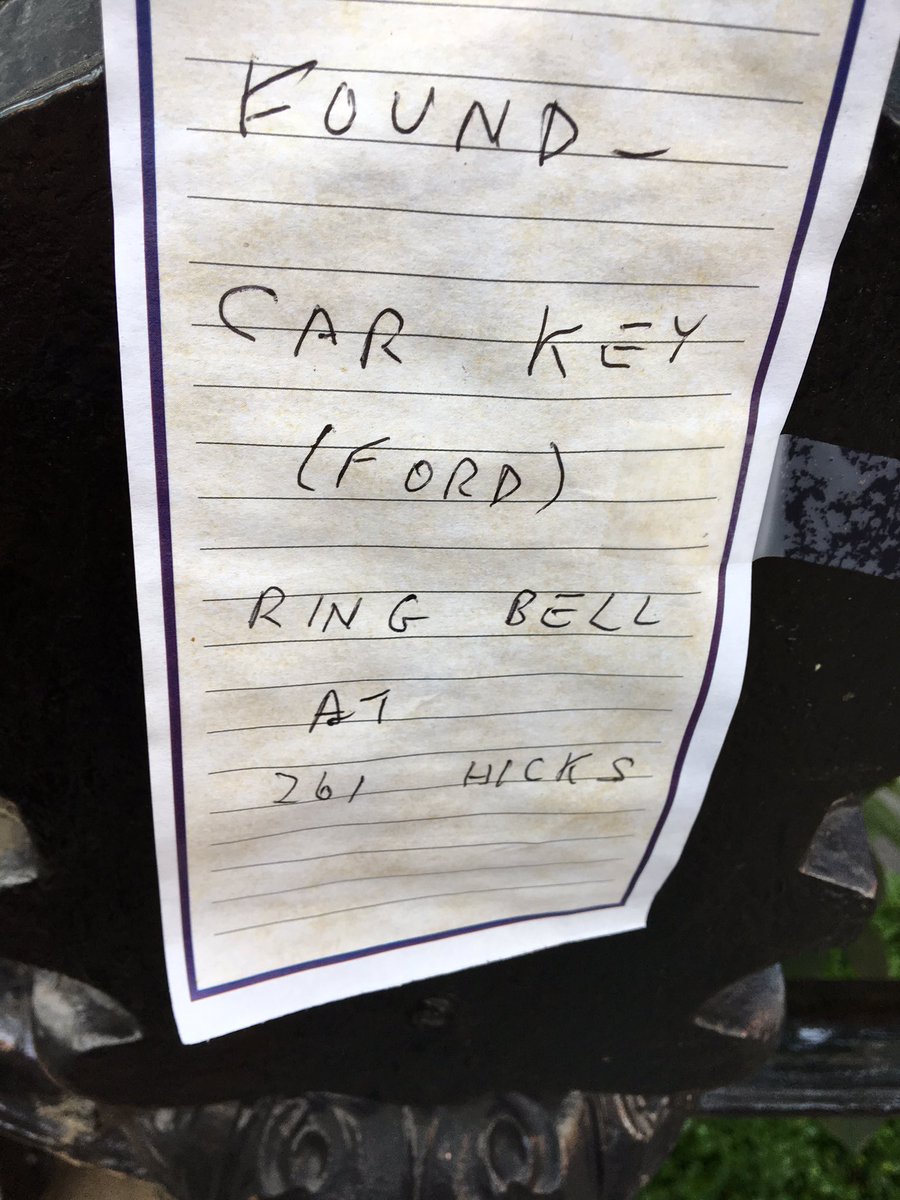 FOUND_
CAR KEY
(FORD)
RING BELL
AT
261 HICKS